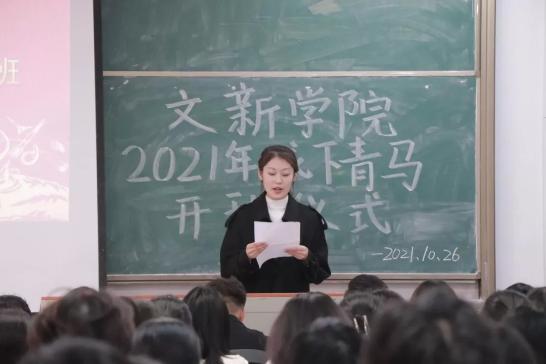 班
文新学院
2021年 下青马
开 仪式
-2021.10.26